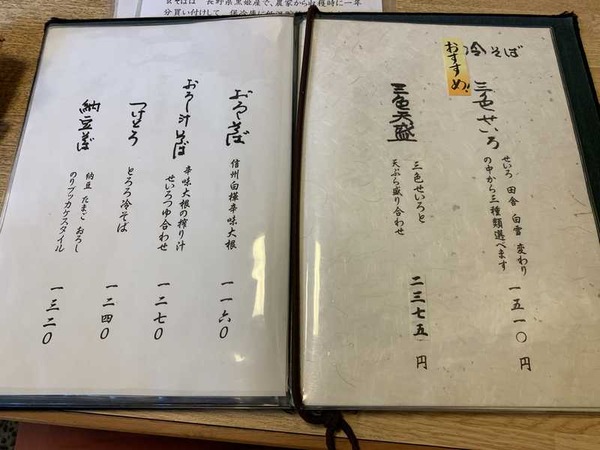 冷そば
おすすめ!!
三色せいろ
せいろ 田舎 白雪 変わり
の中から三種類選べます
一五一〇円
三色天盛
三色せいろと
天ぷら盛り合わせ
二三七五円
おろしそば
信州白様辛味大根
一一六〇
おろし汁そば
辛味大根の搾り汁
せいろつゆ合わせ
一二七〇
つけとろ
とろろ冷そば
一二四〇
納豆そば
納豆 たまご おろし
のりブッカケスタイル
一三二〇